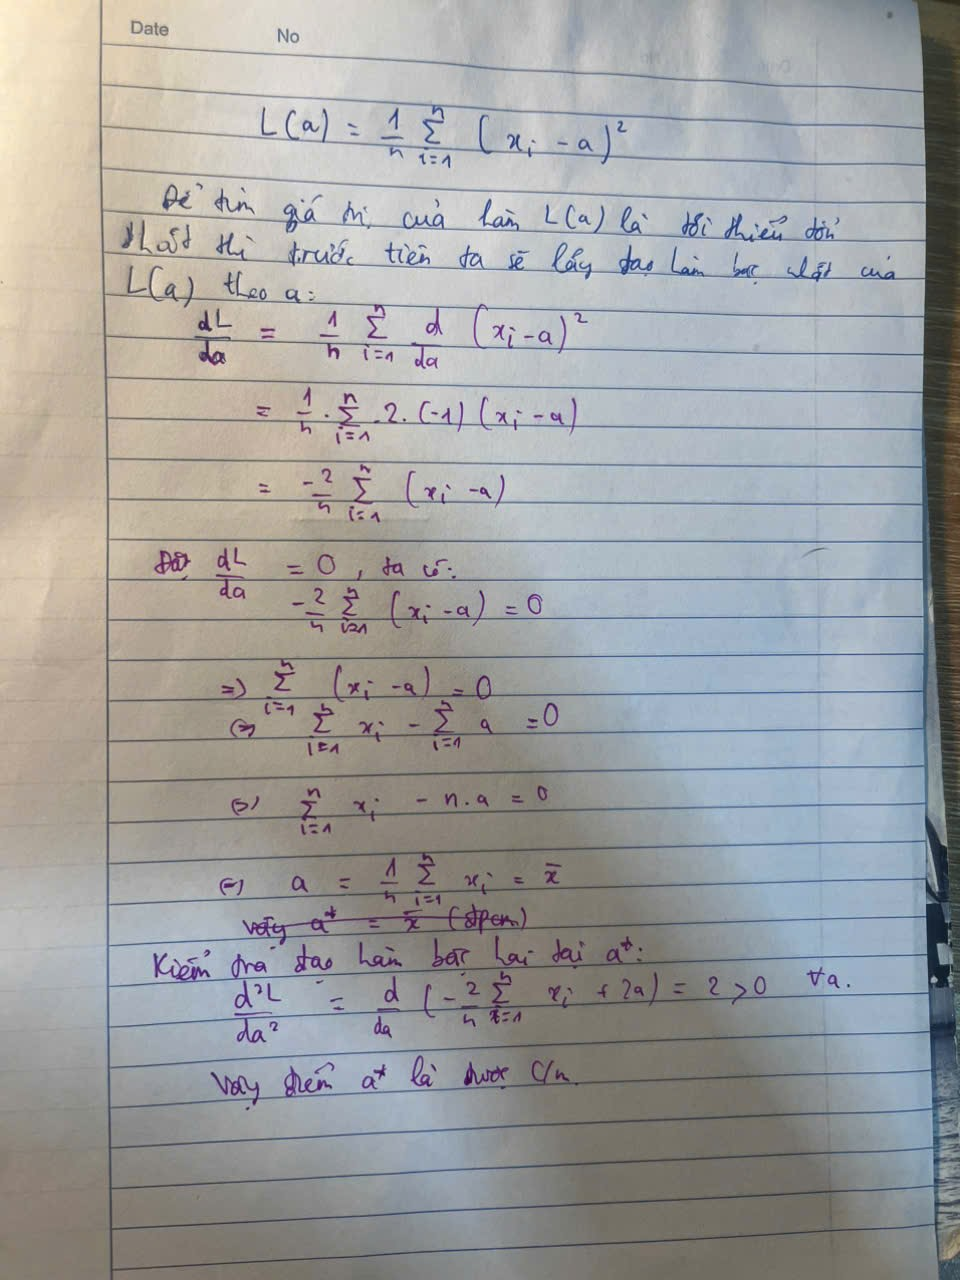 Date No
L(a) = 1/n ∑_{i=1}^{n} (x_i - a)^2
Để tìm giá trị của hàm L(a) là tối thiểu tổn
thất thì trước tiên ta sẽ lấy đạo hàm bậc nhất của
L(a) theo a:
dL/da = 1/n ∑_{i=1}^{n} d/da (x_i - a)^2
= 1/n . ∑_{i=1}^{n} .2. (-1) (x_i - a)
= -2/n ∑_{i=1}^{n} (x_i - a)
Đặt dL/da = 0, ta có:
-2/n ∑_{i=1}^{n} (x_i - a) = 0
=> ∑_{i=1}^{n} (x_i - a) = 0
<=> ∑_{i=1}^{n} x_i - ∑_{i=1}^{n} a = 0
<=> ∑_{i=1}^{n} x_i - n.a = 0
<=> a = 1/n ∑_{i=1}^{n} x_i = x̄
Vậy a* = x̄ (đpcm)
Kiểm tra đạo hàm bậc hai tại a*:
d²L/da² = d/da (-2/n ∑_{i=1}^{n} x_i + 2a) = 2 > 0 ∀a.
Vậy điểm a* là được C/m.